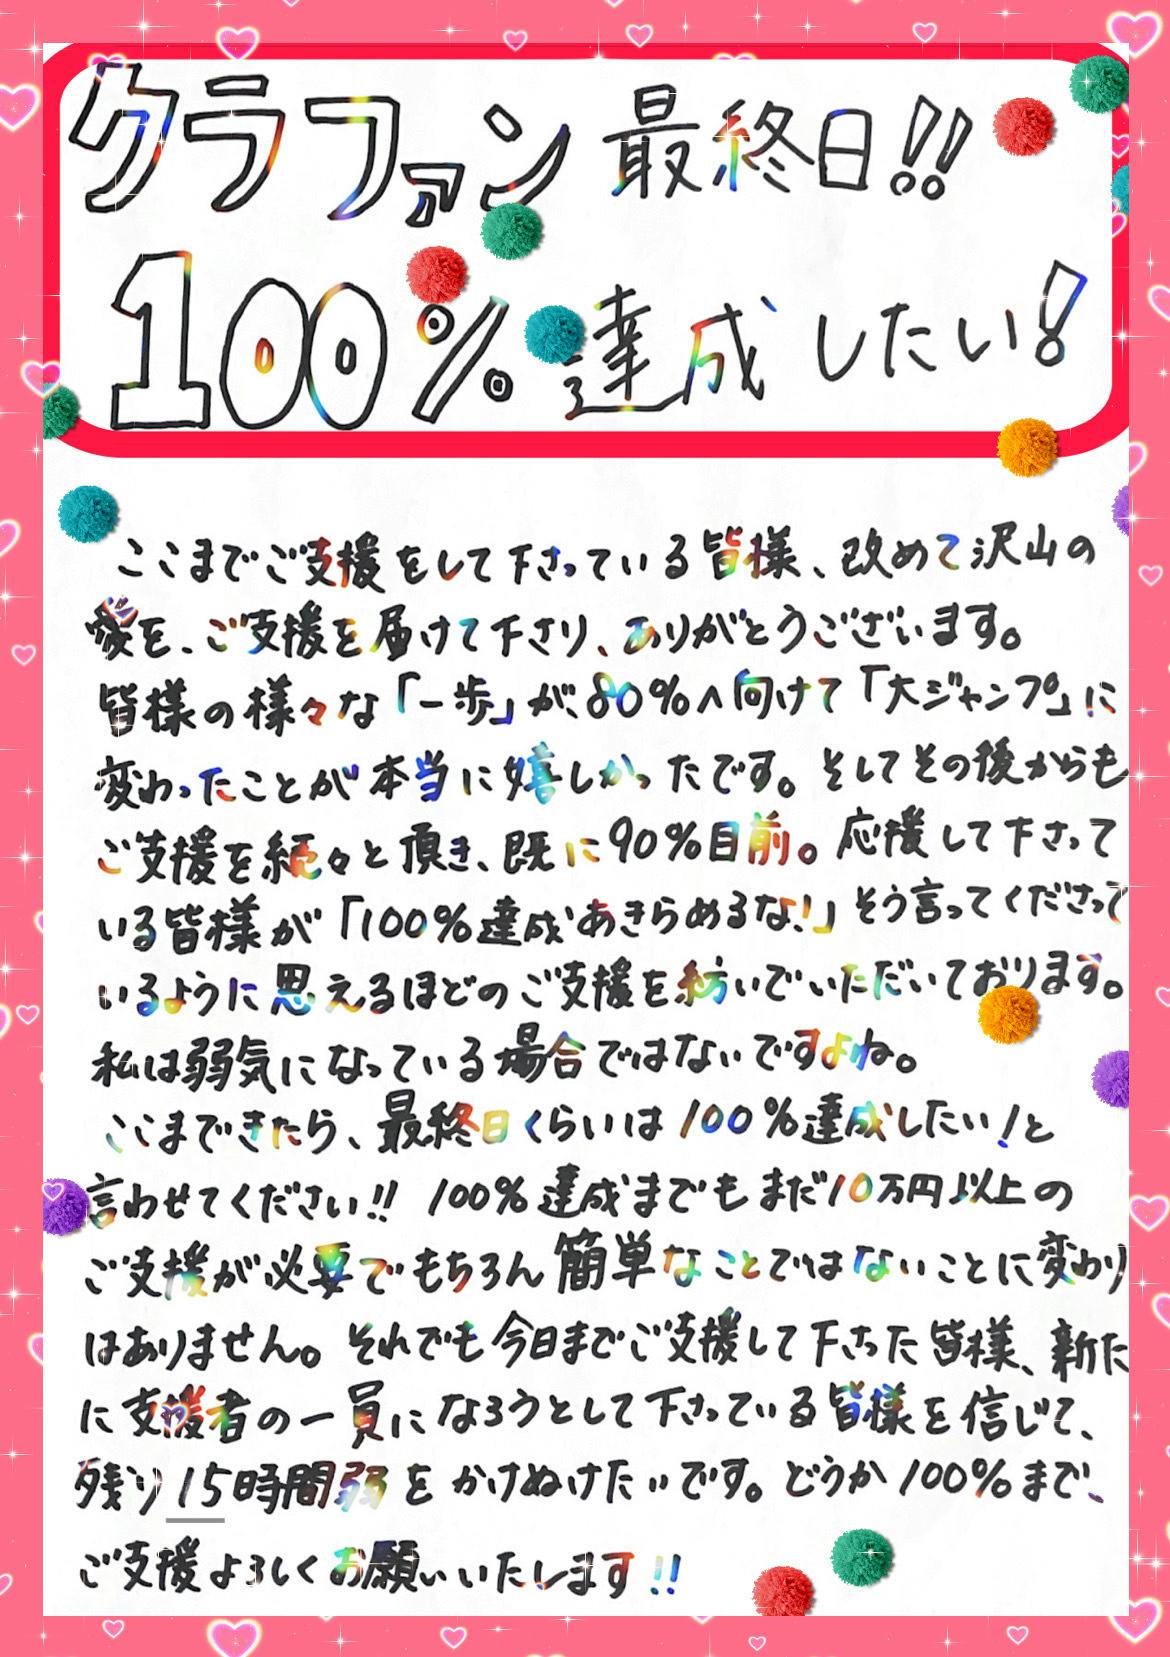 クラファン 最終日!!
100%達成したい!
ここまでご支援をして下さっている皆様、改めて沢山の
愛を、ご支援を届けて下さり、ありがとうございます。
皆様の様々な「一歩」が、80%へ向けて「大ジャンプ」に
変わったことが本当に嬉しかったです。そしてその後からも
ご支援を続々と頂き、既に90%目前。応援して下さって
いる皆様が「100%達成あきらめるな!」そう言ってくださって
いるように思えるほどのご支援を紡いでいただいております。
私は弱気になっている場合ではないですよね。
ここまできたら、最終日くらいは100%達成したい!と
言わせてください!! 100%達成までもまだ10万円以上の
ご支援が必要でもちろん簡単なことではないことに変わり
はありません。それでも今日までご支援して下さった皆様、新た
に支援者の一員になろうとして下さっている皆様を信じて、
残り15時間弱をかけぬけたいです。どうか100%まで、
ご支援よろしくお願いいたします!!